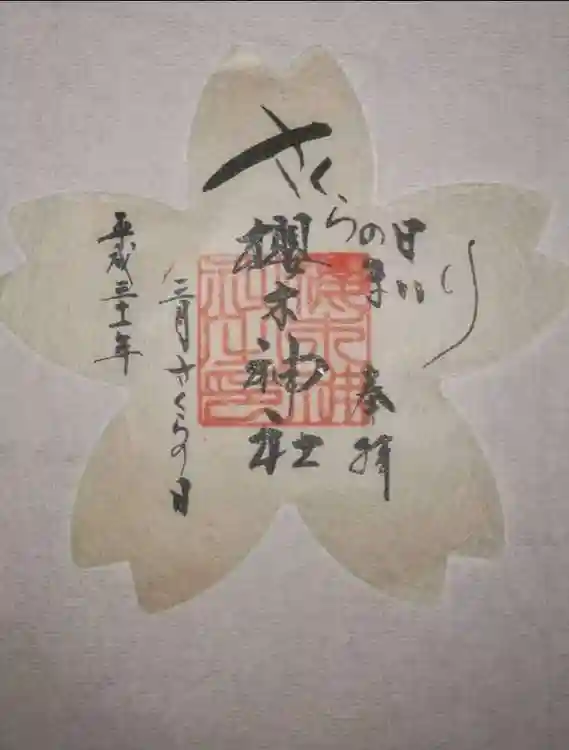 さくらの日
奉拝
櫻木神社
三月さくらの日
平成三十一年
櫻木神
社之印